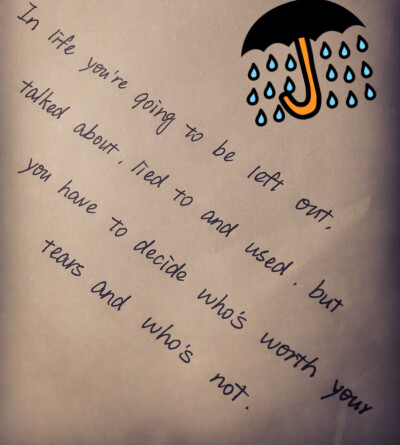 In life you're going to be left out,
talked about, lied to and used. but
you have to decide who's worth your
tears and who's not.